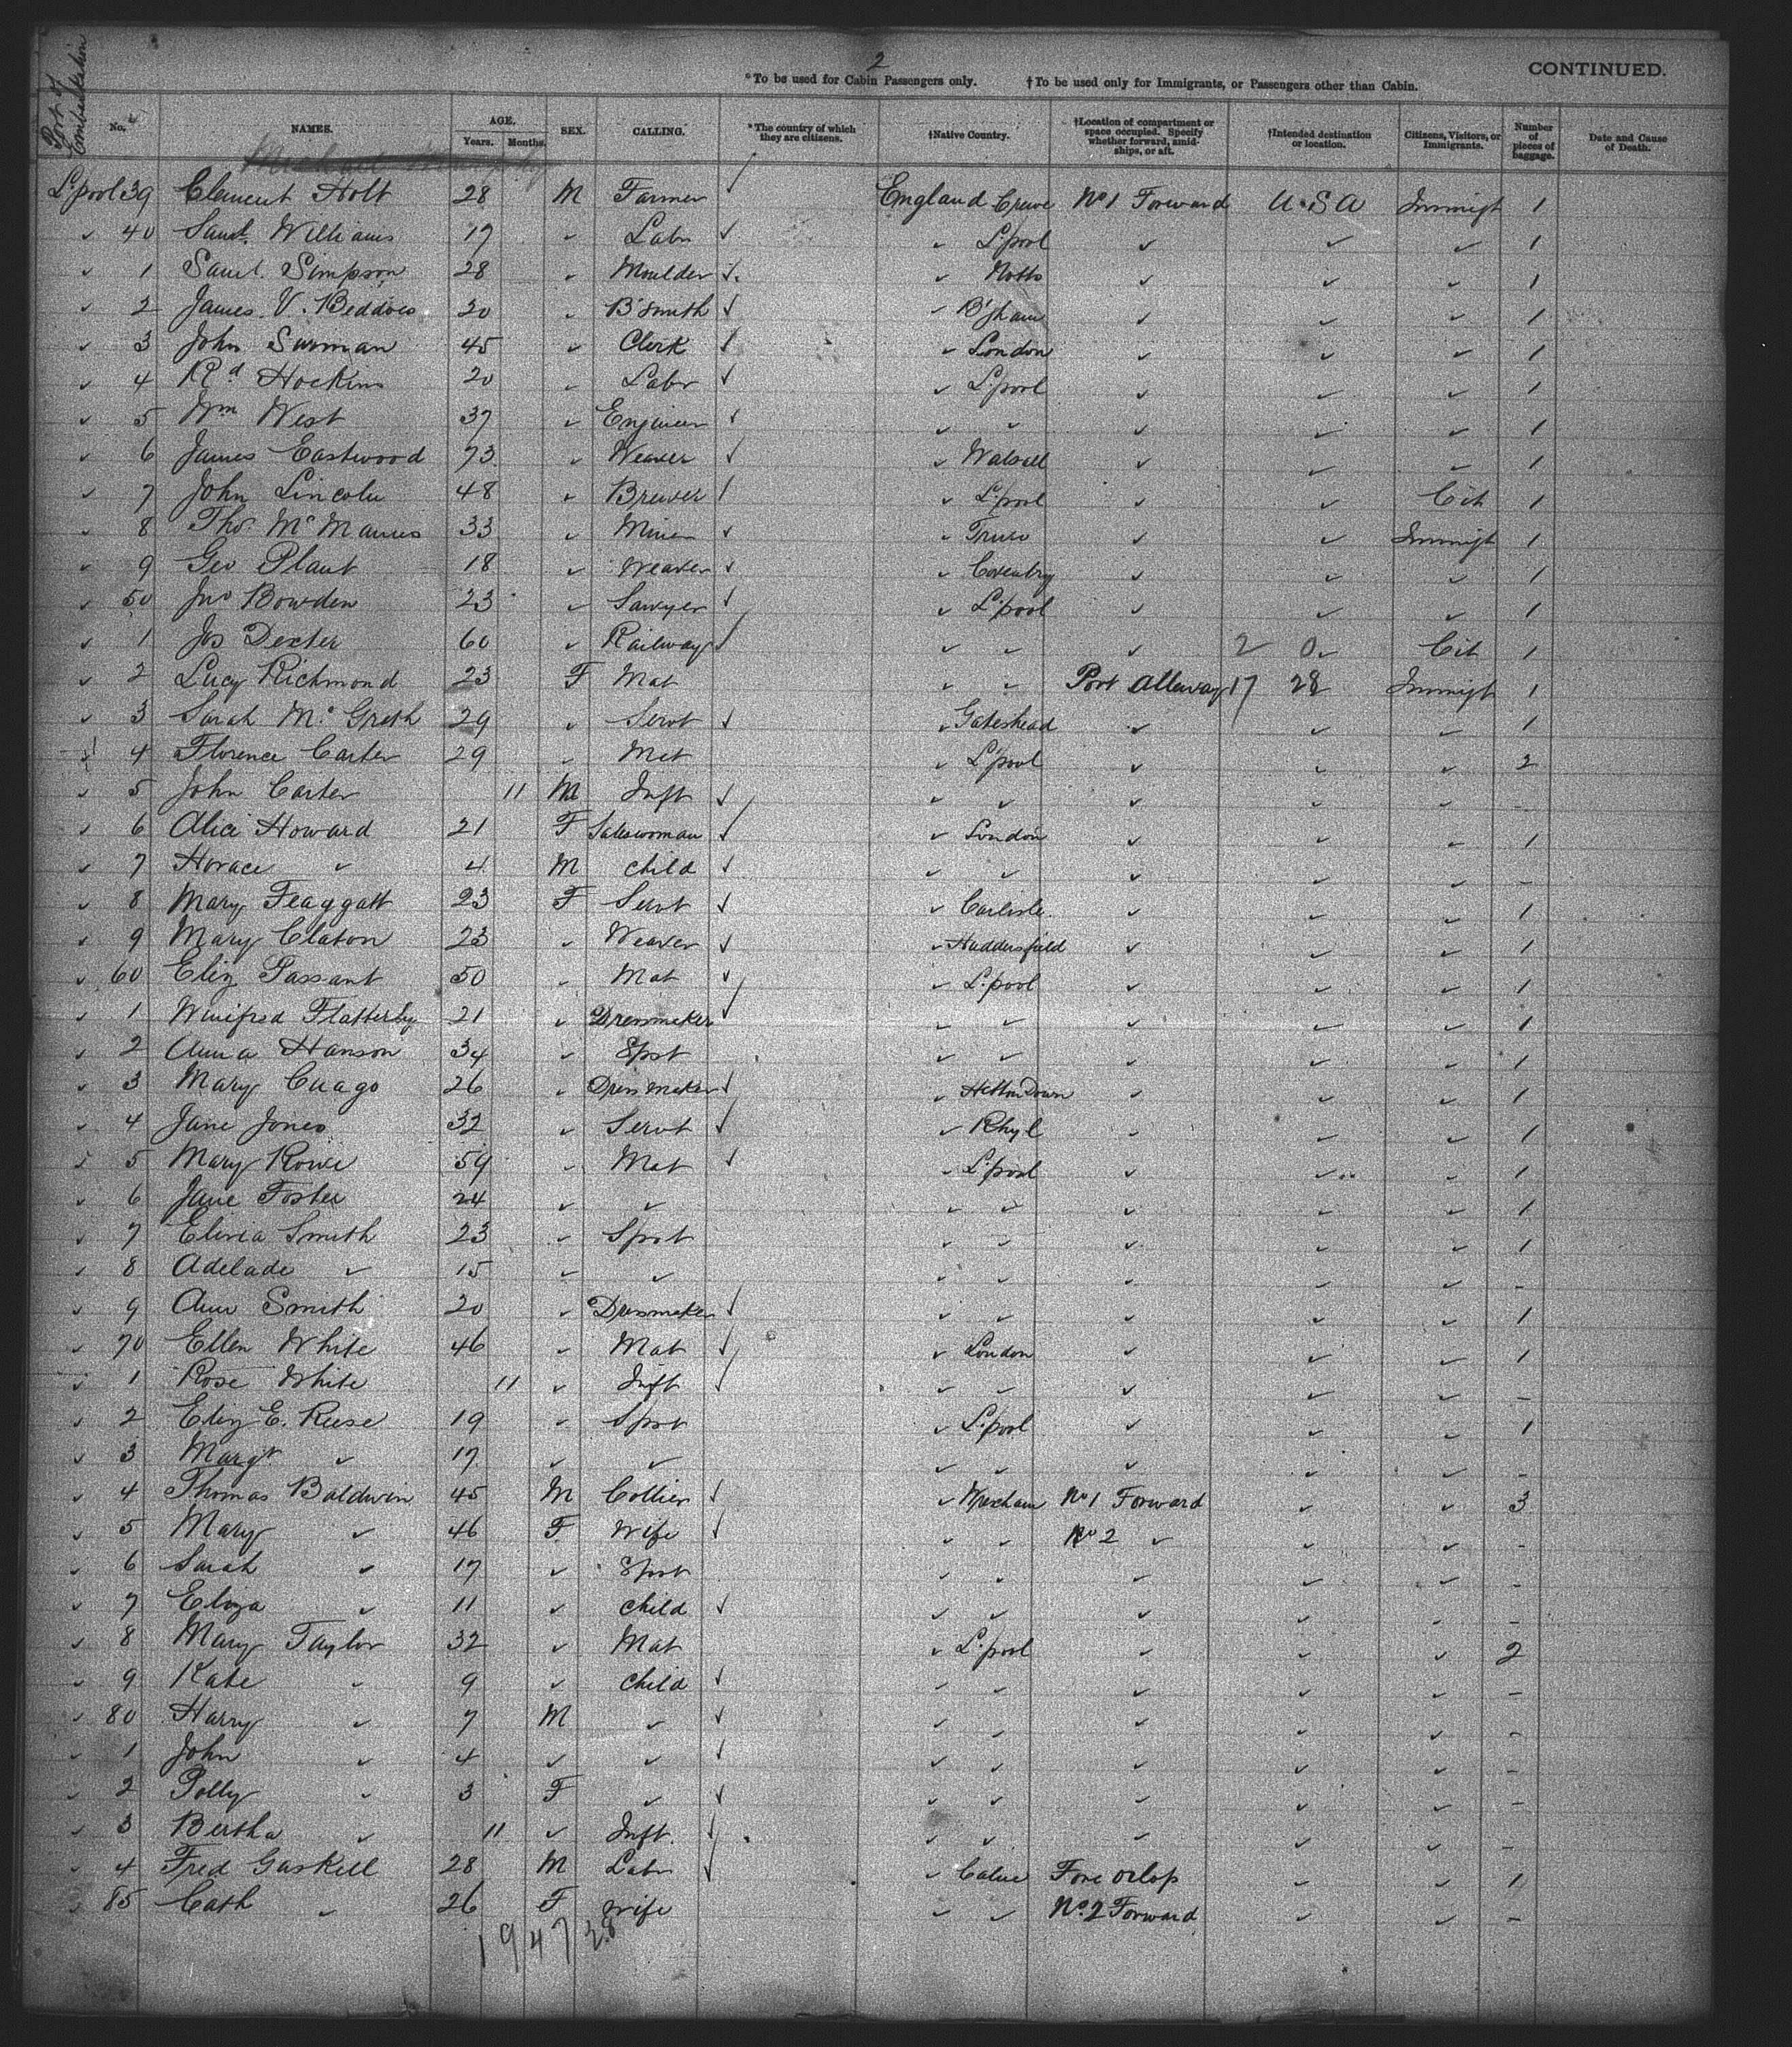 2
*To be used for Cabin Passengers only. †To be used only for Immigrants, or Passengers other than Cabin. CONTINUED.
Port of Embarkation No. NAMES. AGE. Years. Months. SEX. CALLING. *The country of which they are citizens. †Native Country. †Location of compartment or space occupied. Specify whether forward, amidships, or aft. †Intended destination or location. Citizens, Visitors, or Immigrants. Number of pieces of baggage. Date and Cause of Death.
L'pool 39 Clement Holt 28 M Farmer England Crewe No 1 Forward U.S.A Immigt 1
✓ 40 Saml. Williams 17 ✓ Labr ✓ L'pool ✓ ✓ ✓ 1
✓ 1 Saml. Simpson 28 ✓ Moulder ✓ Notts ✓ ✓ ✓ 1
✓ 2 James V. Beddoes 20 ✓ B'Smith ✓ B'gham ✓ ✓ ✓ 1
✓ 3 John Surman 45 ✓ Clerk ✓ London ✓ ✓ ✓ 1
✓ 4 Rd Hockins 20 ✓ Labr ✓ L'pool ✓ ✓ ✓ 1
✓ 5 Wm West 37 ✓ Engineer ✓ ✓ ✓ ✓ ✓ 1
✓ 6 James Eastwood 73 ✓ Weaver ✓ Walsall ✓ ✓ ✓ 1
✓ 7 John Lincoln 48 ✓ Brewer ✓ L'pool ✓ ✓ Cit 1
✓ 8 Thos. McManus 33 ✓ Miner ✓ Truro ✓ ✓ Immigt 1
✓ 9 Geo Plant 18 ✓ Weaver ✓ Coventry ✓ ✓ ✓ 1
✓ 50 Jno Bowden 23 ✓ Sawyer ✓ L'pool ✓ ✓ ✓ 1
✓ 1 Jos Dexter 60 ✓ Railway ✓ ✓ ✓ 2 0 Cit 1
✓ 2 Lucy Richmond 23 F Mat ✓ ✓ Port Alleway 17 28 Immigt 1
✓ 3 Sarah McGreth 29 ✓ Servt ✓ Gateshead ✓ ✓ ✓ 1
✓ 4 Florence Carter 29 ✓ Mat ✓ L'pool ✓ ✓ ✓ 2
✓ 5 John Carter 11 M Inft ✓ ✓ ✓ ✓ ✓ -
✓ 6 Alice Howard 21 F Saleswoman ✓ London ✓ ✓ ✓ 1
✓ 7 Horace ✓ 4 M Child ✓ ✓ ✓ ✓ ✓ -
✓ 8 Mary Flaggatt 23 F Servt ✓ Carlisle ✓ ✓ ✓ 1
✓ 9 Mary Claton 23 ✓ Weaver ✓ Huddersfield ✓ ✓ ✓ 1
✓ 60 Eliz Passant 50 ✓ Mat ✓ L'pool ✓ ✓ ✓ 1
✓ 1 Winifred Flatterby 21 ✓ Dressmaker ✓ ✓ ✓ ✓ ✓ 1
✓ 2 Anna Hanson 34 ✓ Spst ✓ ✓ ✓ ✓ ✓ 1
✓ 3 Mary Cuago 26 ✓ Dressmaker ✓ Hetton Down ✓ ✓ ✓ 1
✓ 4 Jane Jones 32 ✓ Servt ✓ Rhyl ✓ ✓ ✓ 1
✓ 5 Mary Rowe 59 ✓ Mat ✓ L'pool ✓ ✓ ✓ 1
✓ 6 Jane Foster 24 ✓ ✓ ✓ ✓ ✓ ✓ ✓ 1
✓ 7 Elivia Smith 23 ✓ Spst ✓ ✓ ✓ ✓ ✓ 1
✓ 8 Adelade ✓ 15 ✓ ✓ ✓ ✓ ✓ ✓ ✓ -
✓ 9 Ann Smith 20 ✓ Dressmaker ✓ ✓ ✓ ✓ ✓ 1
✓ 70 Ellen White 46 ✓ Mat ✓ London ✓ ✓ ✓ 1
✓ 1 Rose White 11 ✓ Inft ✓ ✓ ✓ ✓ ✓ -
✓ 2 Eliz E. Reese 19 ✓ Spst ✓ L'pool ✓ ✓ ✓ 1
✓ 3 Margt ✓ 17 ✓ ✓ ✓ ✓ ✓ ✓ ✓ -
✓ 4 Thomas Baldwin 45 M Collier ✓ Wrexham No 1 Forward ✓ ✓ 3
✓ 5 Mary ✓ 46 F Wife ✓ ✓ No 2 ✓ ✓ ✓ -
✓ 6 Sarah ✓ 17 ✓ Spst ✓ ✓ ✓ ✓ ✓ -
✓ 7 Eliza ✓ 11 ✓ Child ✓ ✓ ✓ ✓ ✓ -
✓ 8 Mary Taylor 32 ✓ Mat ✓ L'pool ✓ ✓ ✓ 2
✓ 9 Kate ✓ 9 ✓ Child ✓ ✓ ✓ ✓ ✓ -
✓ 80 Harry ✓ 7 M ✓ ✓ ✓ ✓ ✓ ✓ -
✓ 1 John ✓ 4 ✓ ✓ ✓ ✓ ✓ ✓ ✓ -
✓ 2 Polly ✓ 3 F ✓ ✓ ✓ ✓ ✓ ✓ -
✓ 3 Bertha ✓ 11 ✓ Inft. ✓ ✓ ✓ ✓ ✓ -
✓ 4 Fred Gaskell 28 M Labr ✓ Calne Fore orlop ✓ ✓ 1
85 Cath ✓ 26 F Wife ✓ ✓ No. 2 Forward ✓ ✓ -
19 47 28